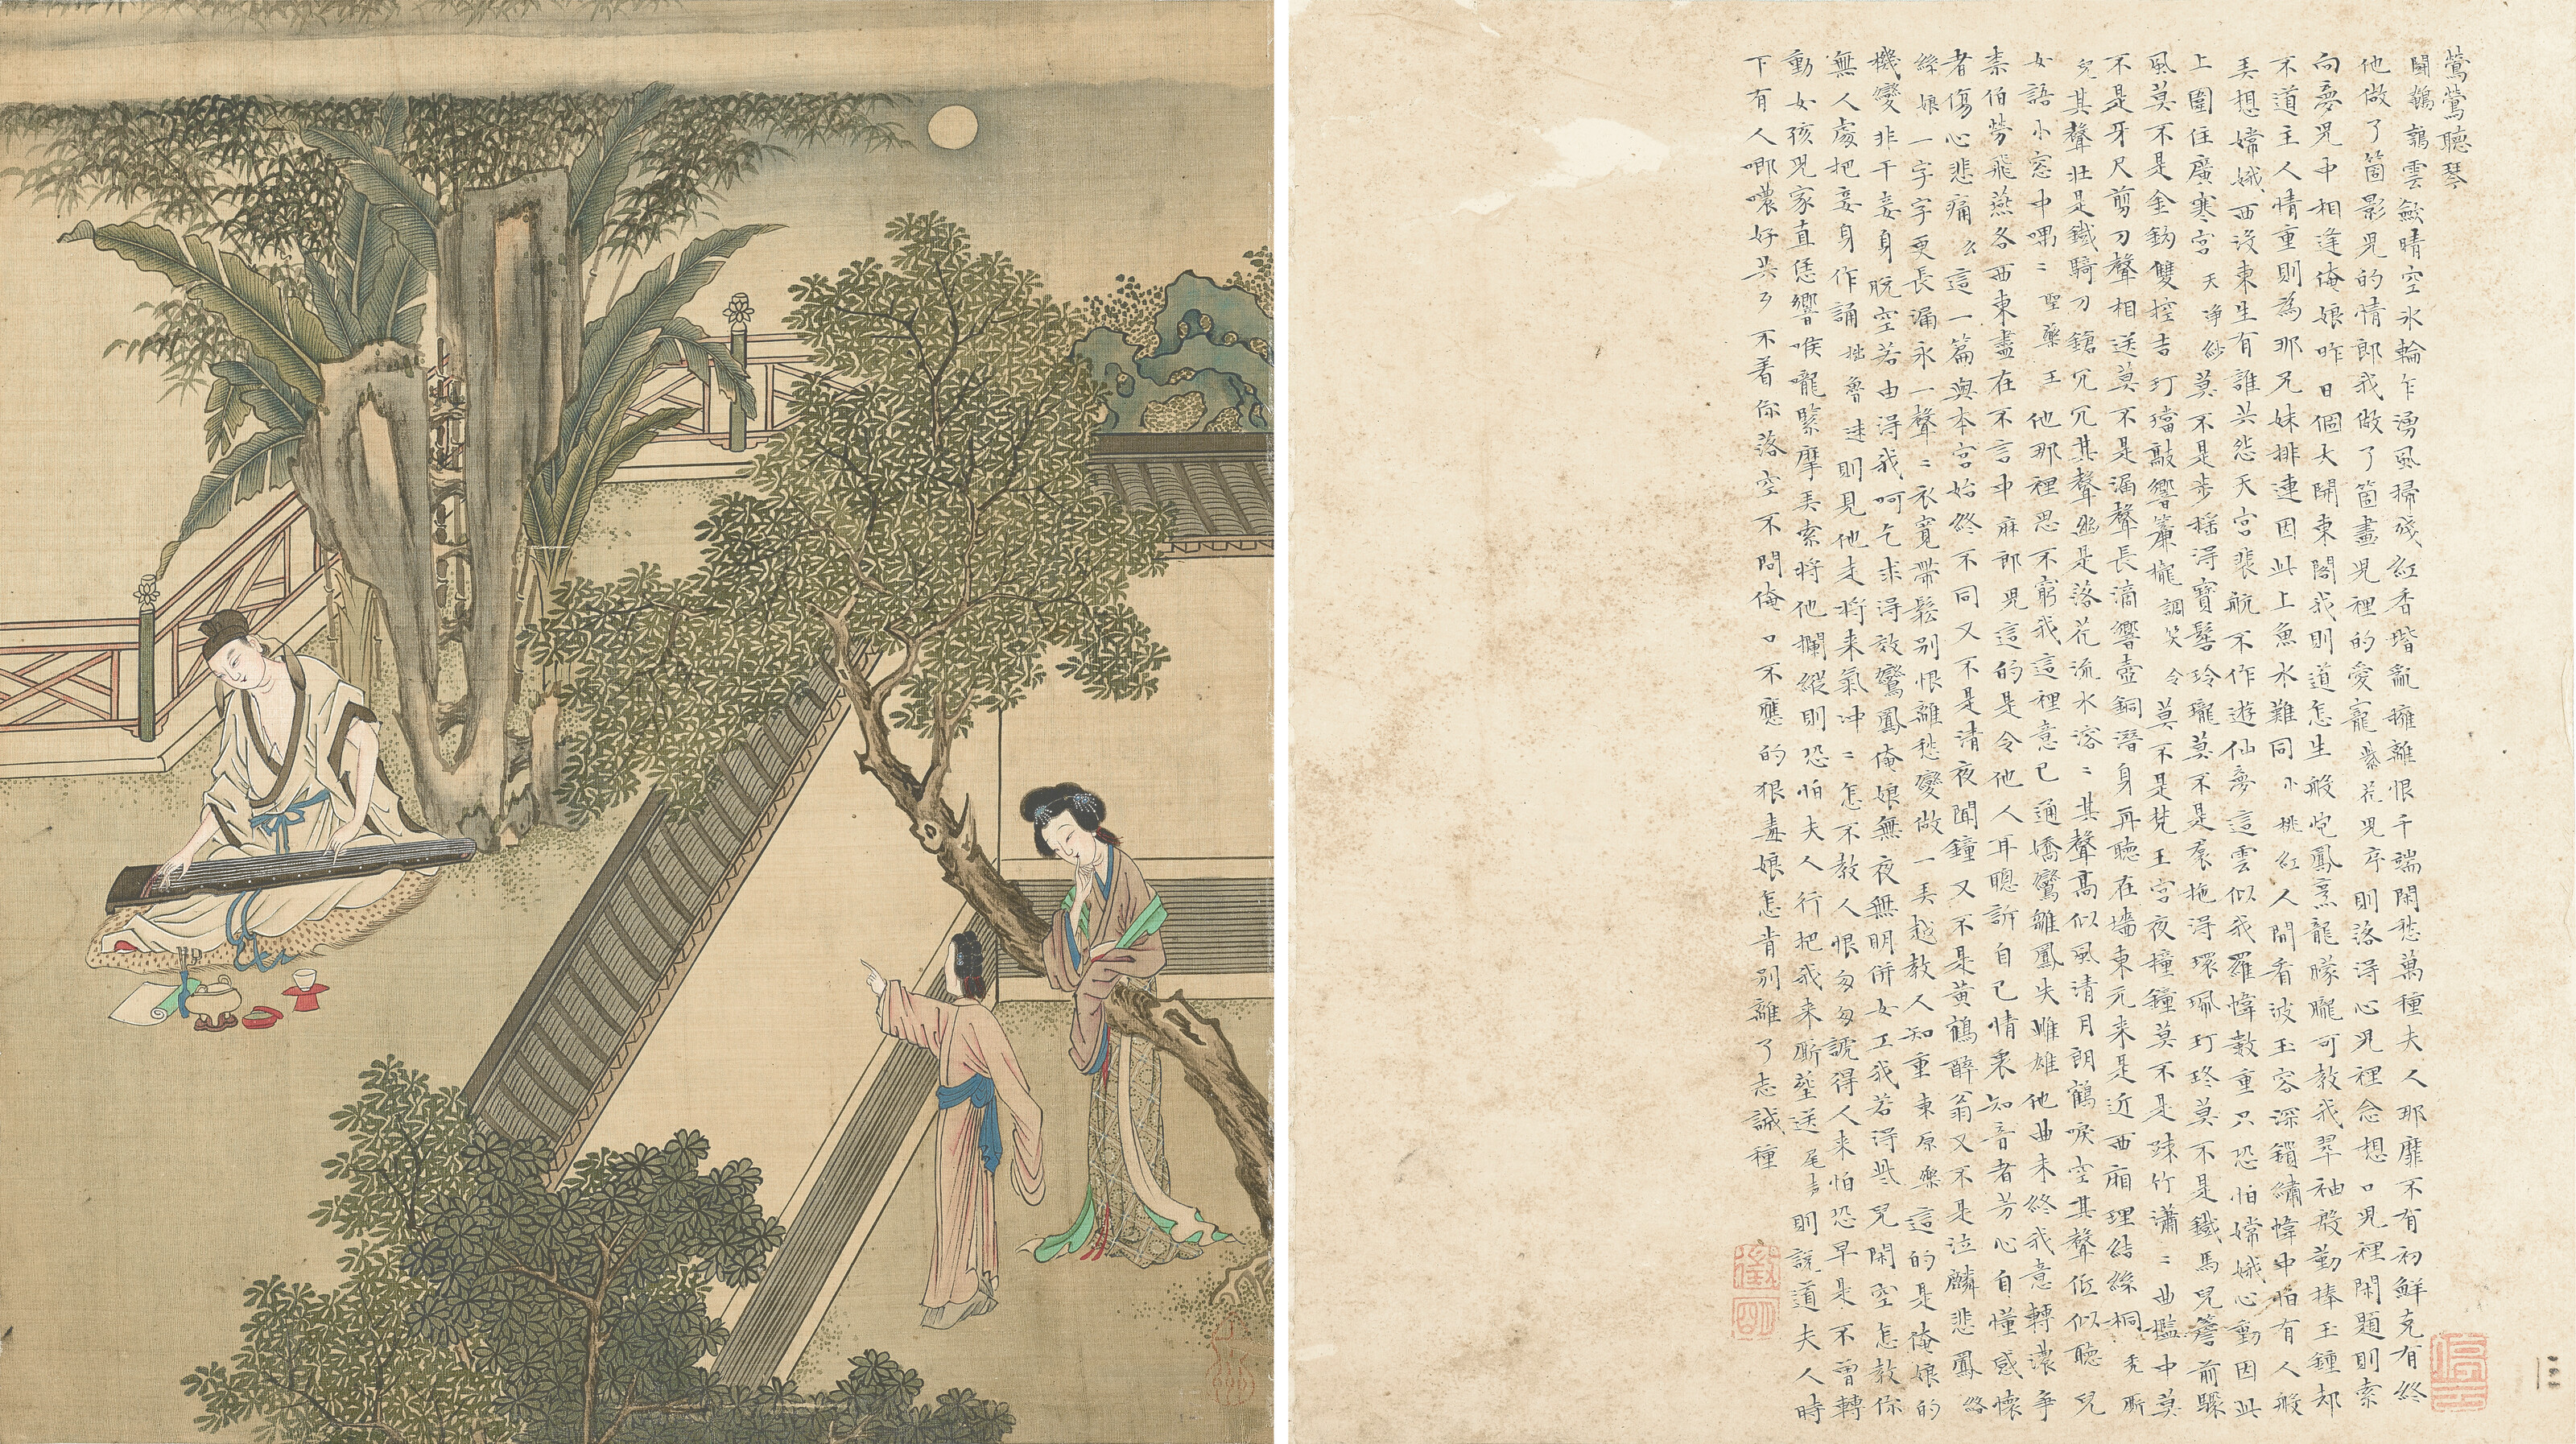 鶯鶯聽琴
鬪鵪鶉雲斂晴空氷輪乍湧風掃殘紅香堦亂擁離恨千端閑愁萬種夫人那靡不有初鮮克有終
他做了箇影兒的情郎我做了箇畫兒裡的愛寵紫花兒序則落得心兒裡念想口兒裡閑題則索
向夢兒中相逢俺娘昨日個大開東閣我則道怎生般炮鳳烹龍朦朧可教我翠袖殷勤捧玉鍾却
不道主人情重則為那兄妹排連因此上魚水難同小桃紅人間看波玉容深鎖繡幃中怕有人般
弄想嫦娥西沒東生有誰共怨天宮裴航不作遊仙夢這雲似我羅幃數重只恐怕嫦娥心動因此
上圍住廣寒宮天净紗莫不是步搖得寶髻玲瓏莫不是裙拖得環珮玎咚莫不是鐵馬兒簷前驟
風莫不是金鈎雙控吉玎璫敲響簾櫳調笑令莫不是梵王宮夜撞鐘莫不是踈竹瀟〻曲檻中莫
不是牙尺剪刀聲相送莫不是漏聲長滴響壺銅潛身再聽在墻東元来是近西廂理結絲桐禿厮
兒其聲壯是鐵騎刀鎗冗冗其聲幽是落花流水溶〻其聲高似風清月朗鶴唳空其聲低似聽兒
女語小窓中喁〻聖藥王他那裡思不窮我這裡意已通嬌鸞雛鳳失雌雄他曲未終我意轉濃争
柰伯勞飛燕各西東盡在不言中麻郎兒這的是令他人耳聰訴自己情衷知音者芳心自懂感懷
者傷心悲痛幺這一篇與本宮始終不同又不是清夜聞鐘又不是黃鶴醉翁又不是泣麟悲鳳絡
絲娘一字字更長漏永一聲〻衣寬帶鬆別恨離愁變做一弄越教人知重東原樂這的是俺娘的
機變非干妾身脫空若由得我呵乞求得效鸞鳳俺娘無夜無明併女工我若得些兒閑空怎教你
無人處把妾身作誦拙魯速則見他走將来氣冲〻怎不教人恨匆匆諕得人来怕恐早是不曾轉
動女孩兒家直恁響喉嚨緊摩弄索將他攔縱則恐怕夫人行把我来厮葬送尾声則說道夫人時
下有人唧噥好共歹不着你落空不問俺口不應的狠毒娘怎肯別離了志誠種
徵明